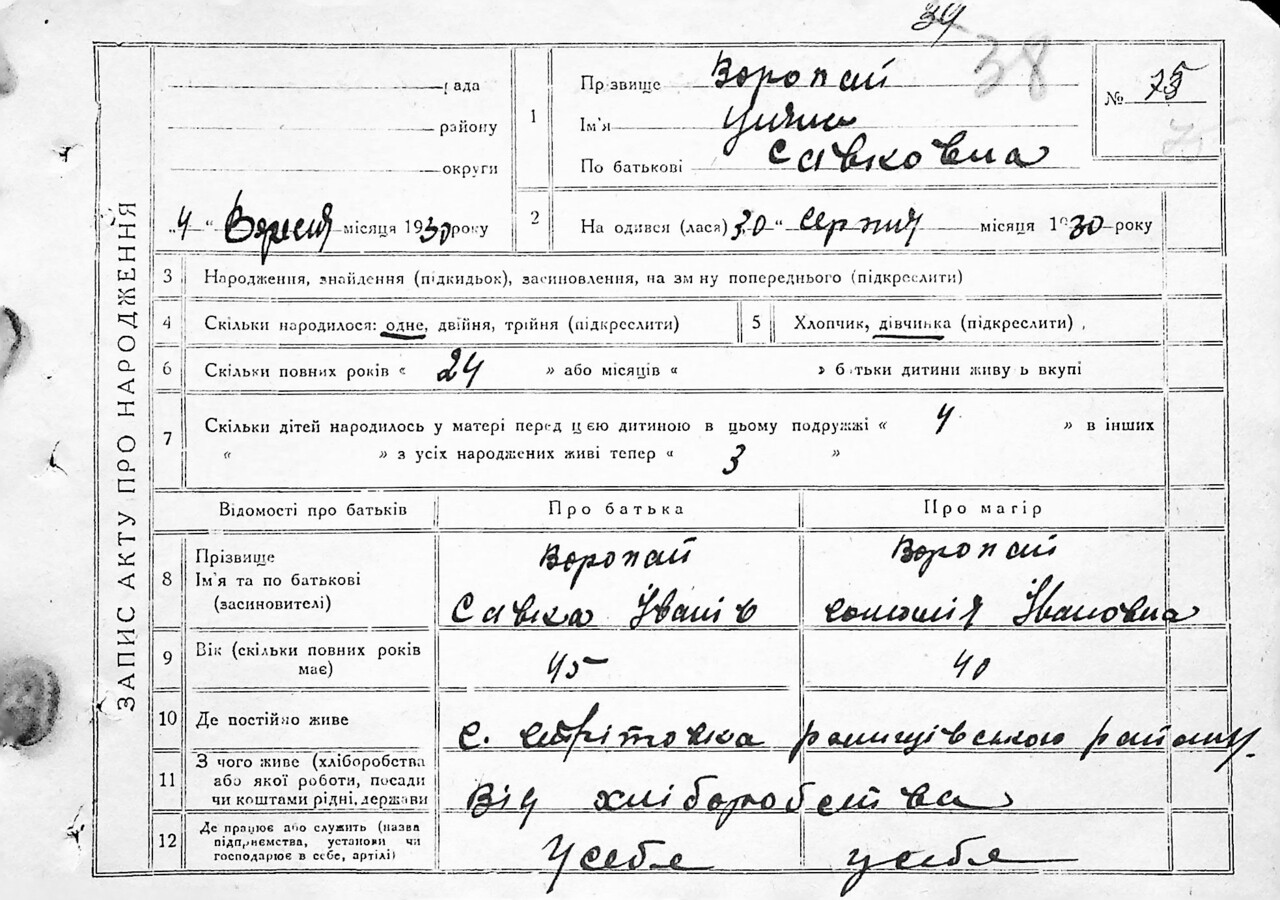 39
38
рада
району
округи
„4“ Вересня місяця 1930 року
1
Прізвище Воропай
Ім'я
По батькові Савковна
№ 75
75
2
На одився (лася) 30 “ Серпня місяця 1930 року
ЗАПИС АКТУ ПРО НАРОДЖЕННЯ
3 Народження, знайдення (підкидьок), засиновлення, на зм ну попереднього (підкреслити)
4 Скільки народилося: одне, двійня, трійня (підкреслити)
5 Хлопчик, дівчинка (підкреслити)
6 Скільки повних років « 24 » або місяців « » б тьки дитини живу ь вкупі
7 Скільки дітей народилось у матері перед цією дитиною в цьому подружжі « 4 » в інших
« » з усіх народжених живі тепер « 3 »
Відомості про батьків Про батька Про матір
8 Прізвище
Ім'я та по батькові
(засиновителі)
Воропай
Савка Іванів
Воропай
Соломія Івановна
9 Вік (скільки повних років
має)
45 40
10 Де постійно живе с. Стрітовка ранищівського району
11 З чого живе (хліборобства
або якої роботи, посади
чи коштами рідні, держави
Від хліборобства
12 Де працює або служить (назва
підприємства, установи чи
господарює в себе, артілі)
У себе у себе